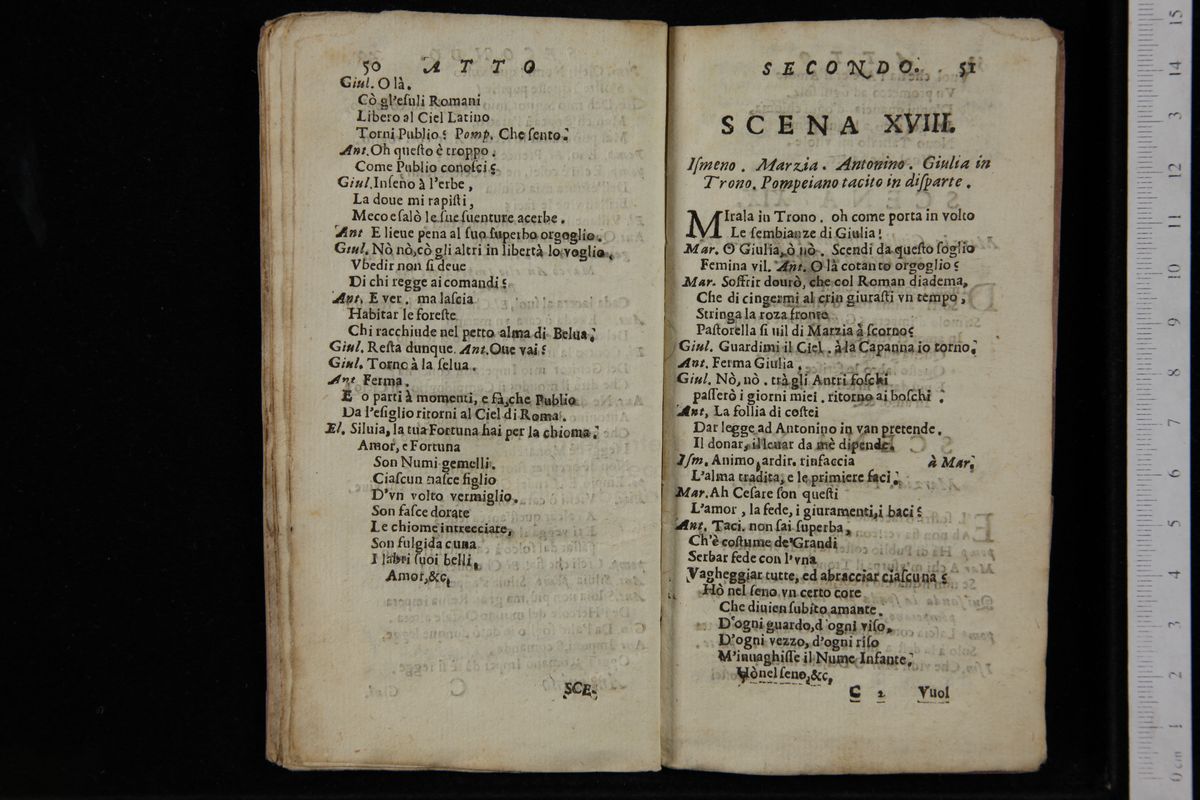 50 ATTO
Giul. O là.
Cò gl'eſuli Romani
Libero al Ciel Latino
Torni Publio? Pomp. Che ſento.
Ant. Oh queſto è troppo.
Come Publio conoſci?
Giul. Inſeno à l'erbe,
La doue mi rapiſti,
Meco eſalò le ſue ſuenture acerbe.
Ant E lieue pena al ſuo ſuperbo orgoglio.
Giul. Nò nò, cò gli altri in libertà lo voglio,
Vbedir non ſi deue
Di chi regge ai comandi?
Ant. E ver. ma laſcia
Habitar le foreſte
Chi racchiude nel petto alma di Belua.
Giul. Reſta dunque. Ant. Oue vai?
Giul. Torno à la ſelua.
Ant Ferma.
E o parti à momenti, e fà, che Publio
Da l'eſiglio ritorni al Ciel di Roma.
El. Siluia, la tua Fortuna hai per la chioma.
Amor, e Fortuna
Son Numi gemelli.
Ciaſcun naſce figlio
D'vn volto vermiglio,
Son faſce dorate
Le chiome intrecciate,
Son fulgida cuna
I labri ſuoi belli,
Amor, &c,
SCE-
SECONDO. 51
SCENA XVIII.
Iſmeno. Marzia. Antonino. Giulia in
Trono. Pompeiano tacito in diſparte.
MIrala in Trono. oh come porta in volto
Le ſembianze di Giulia!
Mar. O Giulia, ò nò. Scendi da queſto ſoglio
Femina vil. Ant. O là cotanto orgoglio?
Mar. Soffrir dourò, che col Roman diadema,
Che di cingermi al crin giuraſti vn tempo,
Stringa la roza fronte
Paſtorella ſi uil di Marzia à ſcorno?
Giul. Guardimi il Ciel. à la Capanna io torno.
Ant. Ferma Giulia.
Giul. Nò, nò. trà gli Antri foſchi
paſſerò i giorni miei. ritorno ai boſchi.
Ant, La follia di coſtei
Dar legge ad Antonino in van pretende.
Il donar, il leuar da mè dipende.
Iſm. Animo, ardir. rinfaccia à Mar.
L'alma tradita, e le primiere faci.
Mar. Ah Ceſare ſon queſti
L'amor, la fede, i giuramenti, i baci?
Ant. Taci. non ſai ſuperba,
Ch'è coſtume de'Grandi
Serbar fede con l'vna
Vagheggiar tutte, ed abracciar ciaſcuna?
Hò nel ſeno vn certo core
Che diuien ſubito amante.
D'ogni guardo, d'ogni viſo,
D'ogni vezzo, d'ogni riſo
M'inuaghiſſe il Nume Infante.
Hò nel ſeno, &c,
C 2 Vuol